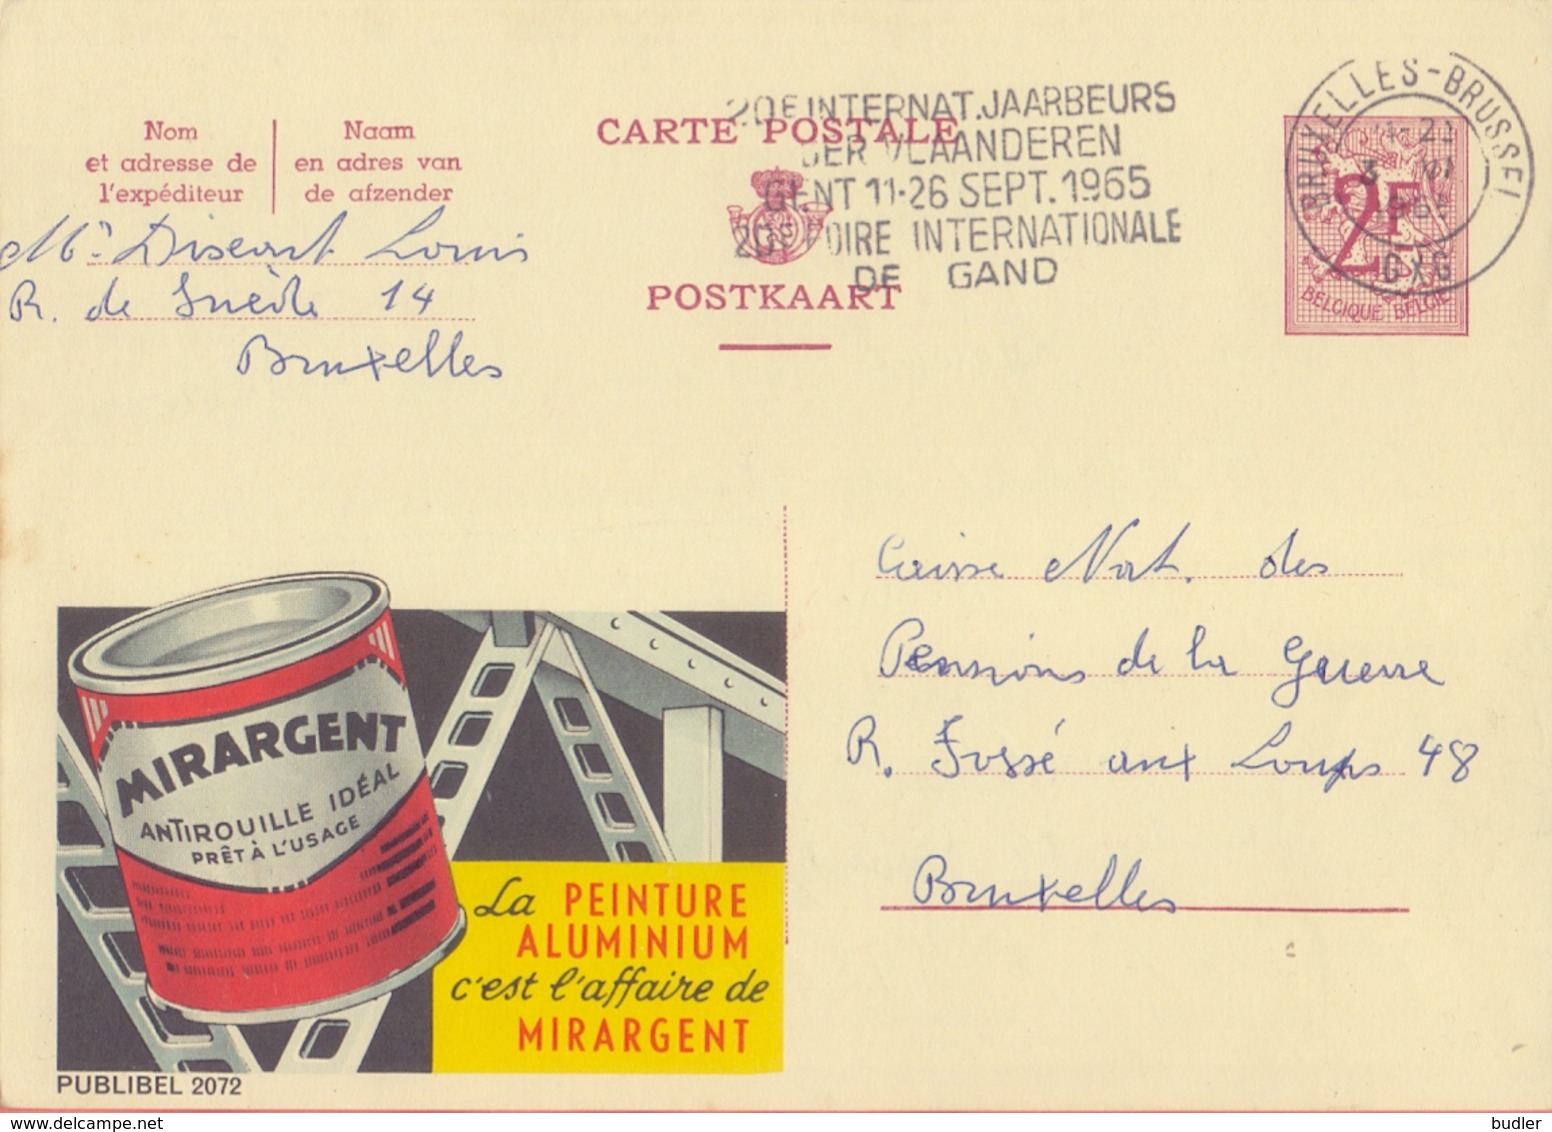 Nom
et adresse de
l'expéditeur
Naam
en adres van
de afzender
CARTE POSTALE
POSTKAART
20E INTERNAT. JAARBEURS
DER VLAANDEREN
GENT 11-26 SEPT. 1965
20E FOIRE INTERNATIONALE
DE GAND
BRUXELLES-BRUSSEL
GXG
2F
BELGIQUE BELGIË
Mr Discart Louis
R. de Suède 14
Bruxelles
Caisse Nat. des
Pensions de la Guerre
R. Fossé aux Loups 48
Bruxelles
MIRARGENT
ANTIROUILLE IDÉAL
PRÊT À L'USAGE
La PEINTURE
ALUMINIUM
c'est l'affaire de
MIRARGENT
PUBLIBEL 2072
www.delcampe.net
budler